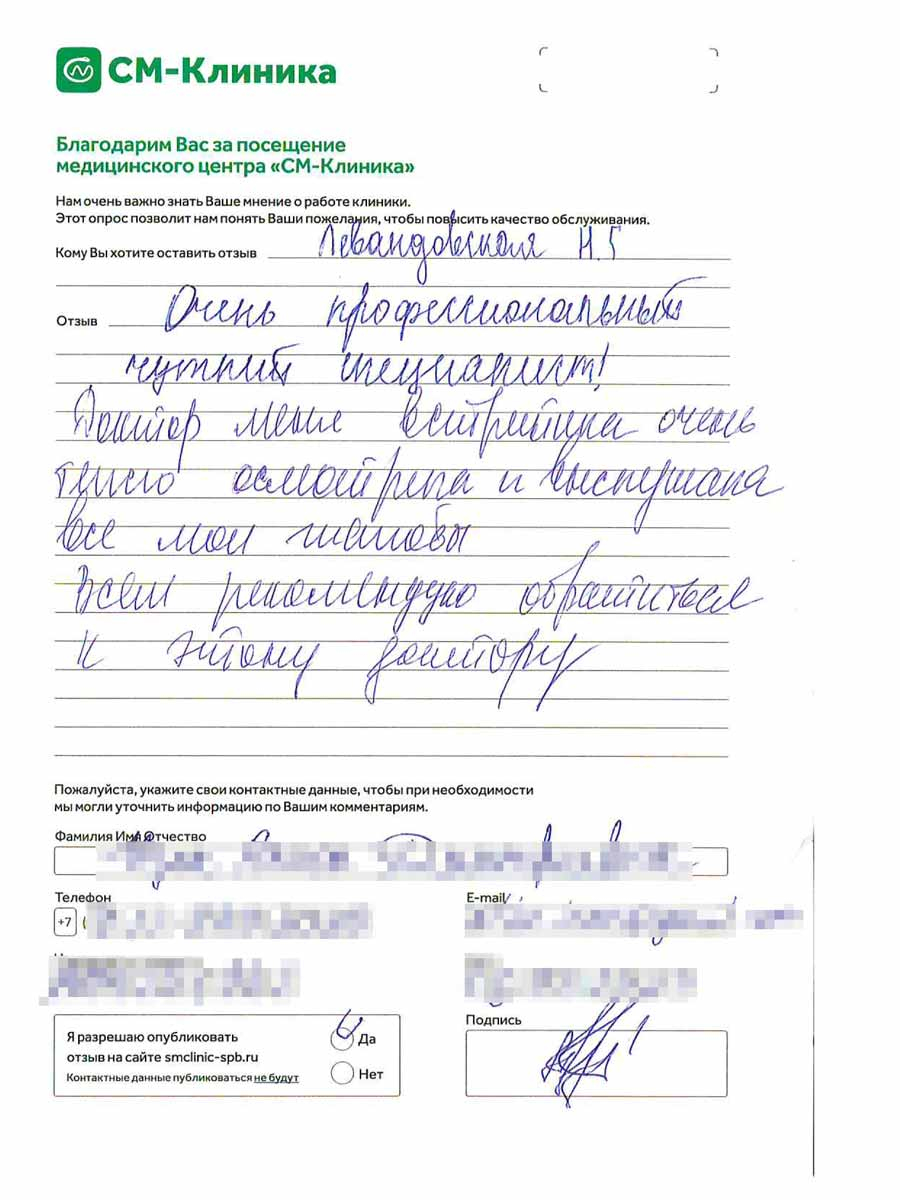 СМ-Клиника
Благодарим Вас за посещение
медицинского центра «СМ-Клиника»
Нам очень важно знать Ваше мнение о работе клиники.
Этот опрос позволит нам понять Ваши пожелания, чтобы повысить качество обслуживания.
Кому Вы хотите оставить отзыв Левандовская Н.Г
Отзыв Очень профессиональный
чуткий специалист!
Доктор меня встретила очень
тепло осмотрела и выслушала
все мои жалобы
Всем рекомендую обратиться
к этому доктору
Пожалуйста, укажите свои контактные данные, чтобы при необходимости
мы могли уточнить информацию по Вашим комментариям.
Фамилия Имя Отчество
Телефон E-mail
+7 (
Я разрешаю опубликовать
отзыв на сайте smclinic-spb.ru
Контактные данные публиковаться не будут
Да
Нет
Подпись